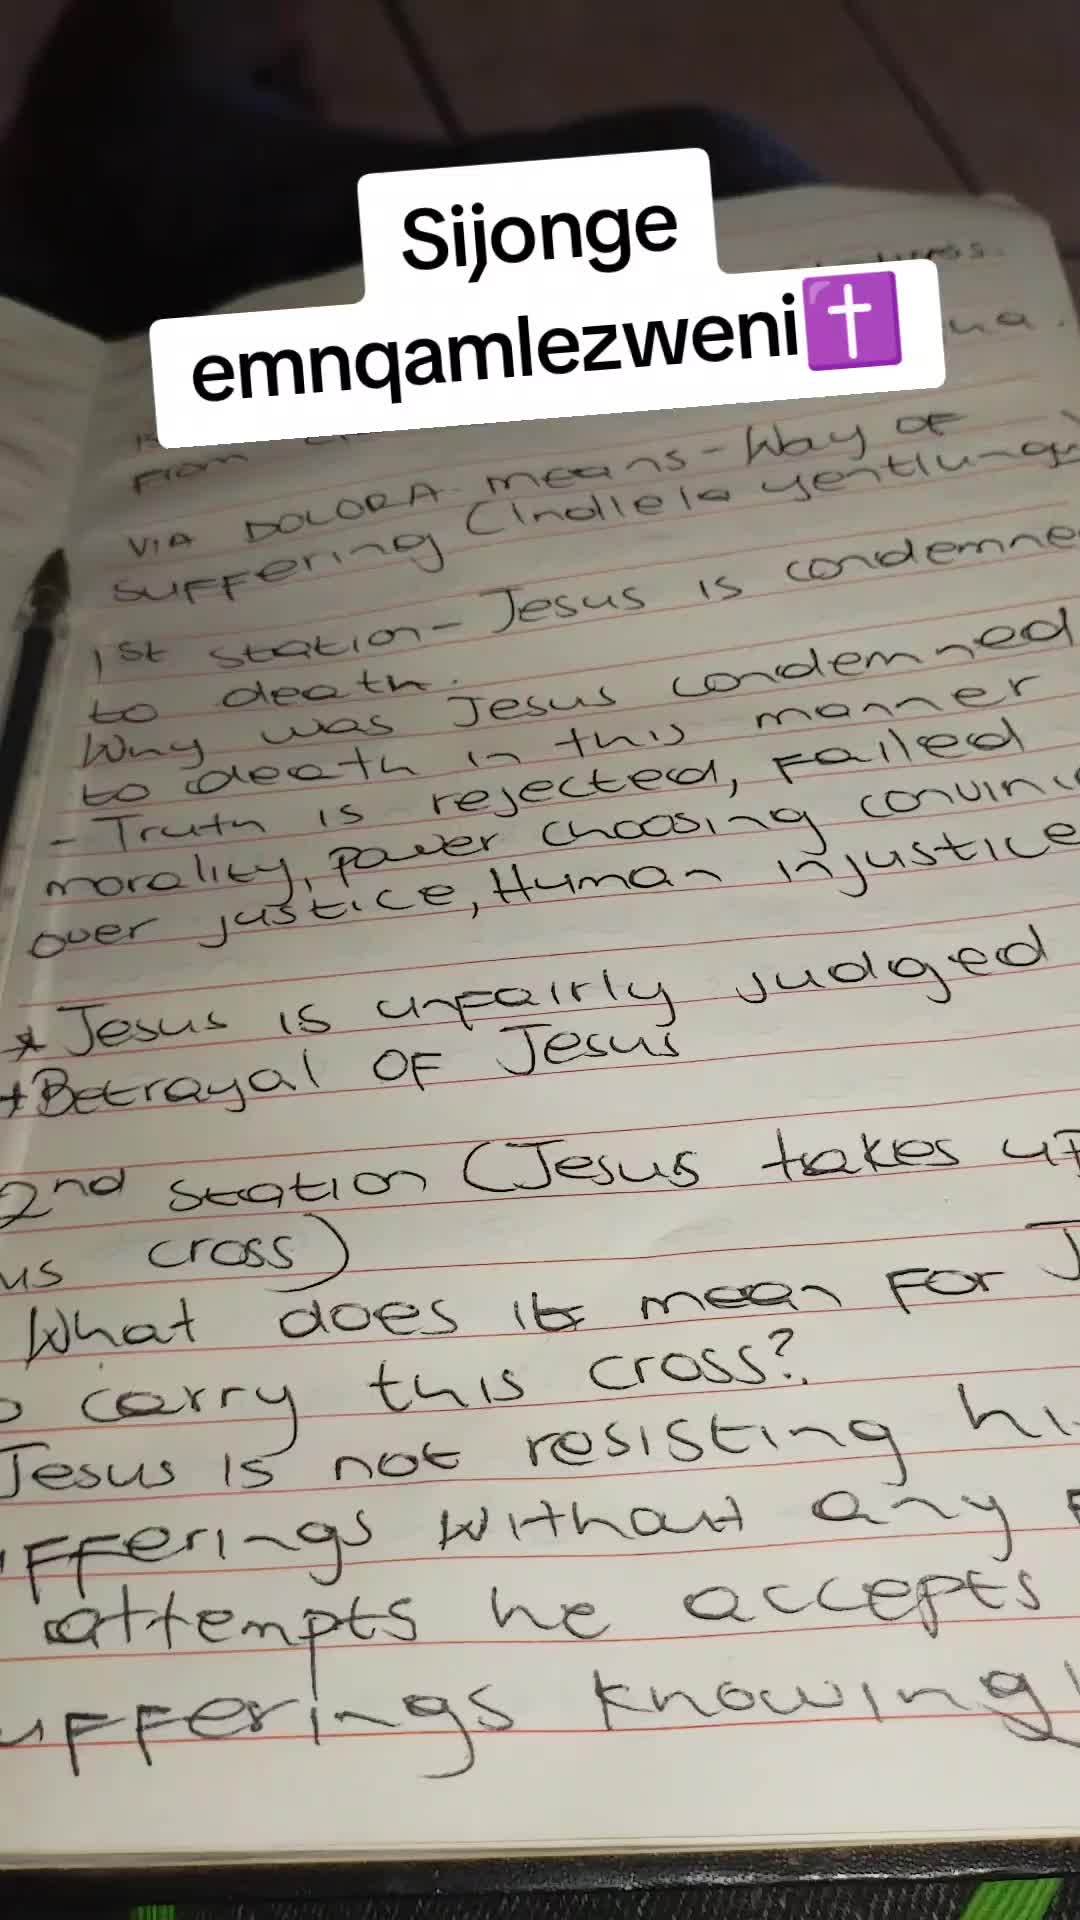 Sijonge
emnqamlezweni✝️
From
VIA DOLORA means - Way of
suffering (Indlela yentlungu)
1st station - Jesus is condemne
to death.
Why was Jesus condemned
to death in this manner
- Truth is rejected, Failed
morality, power choosing convini
over justice, Human injustice
* Jesus is unfairly judged
* Betrayal of Jesus
2nd station (Jesus takes up
us cross)
What does it mean for J
o carry this cross?
Jesus is not resisting hi
ufferings without any
attempts he accepts
ufferings knowingl